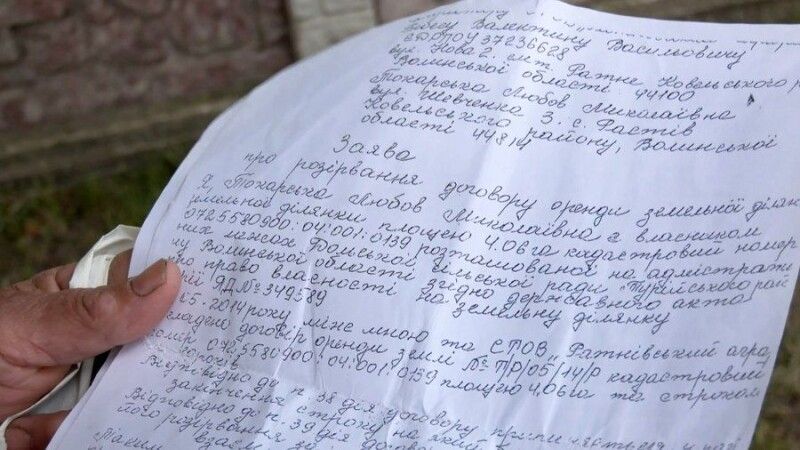 Валентину Васильовичу
ЄДРПОУ 37236628
вул. Нова 2. смт Ратне Ковельського р
Волинської області 44100
Токарська Любов Миколаївна
вул. Шевченка 3. с. Растів
Ковельського району, Волинської
області 44814
Заява
про розірвання договору оренди земельної ділян
Я, Токарська Любов Миколаївна є власником
земельної ділянки площею 4.06 га кадастровий номер
0725580900:04:001:0139 розташованої на адміністрати
них межах сільської ради "Турійського рай
ну Волинської області згідно державного акта
про право власності на земельну ділянку
рії ЯД № 349589
05-2014 року між мною та СТОВ „Ратнівський аграр
кладено договір оренди землі № кадастровий
номер 0725580900:04:001:0139 площею 4,06 га та строком
років
Відповідно до п. 38 дія договору
закінчення строку на який
Відповідно до п. 39 дія договору
його розірвання
Таким